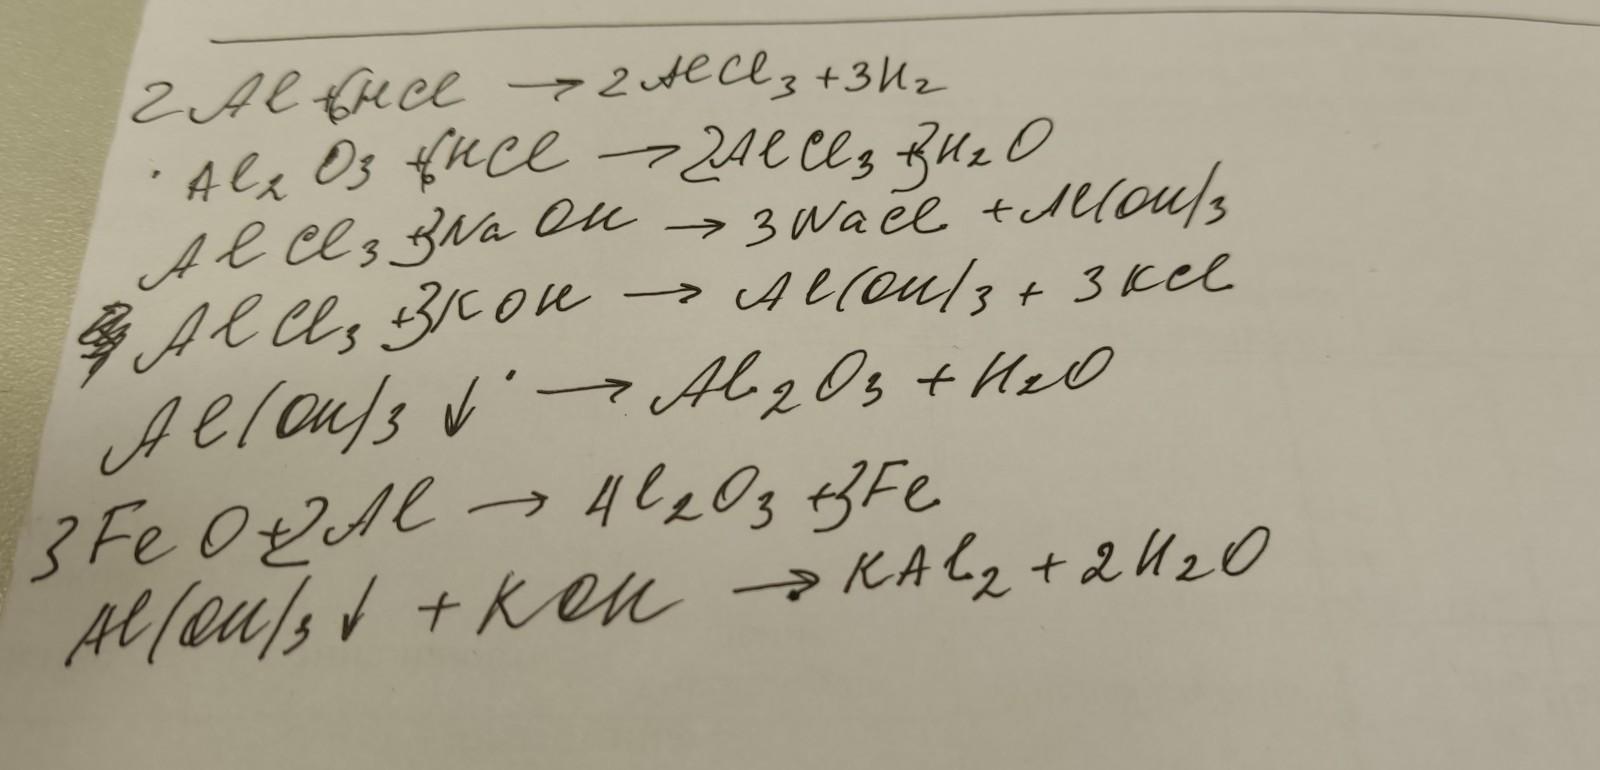 2Al + 6HCl → 2AlCl₃ + 3H₂
Al₂O₃ + 6HCl → 2AlCl₃ + 3H₂O
AlCl₃ + 3NaOH → 3NaCl + Al(OH)₃
AlCl₃ + 3KOH → Al(OH)₃ + 3KCl
Al(OH)₃ ↓ → Al₂O₃ + H₂O
3FeO + 2Al → Al₂O₃ + 3Fe
Al(OH)₃ ↓ + KOH → KAl₂ + 2H₂O